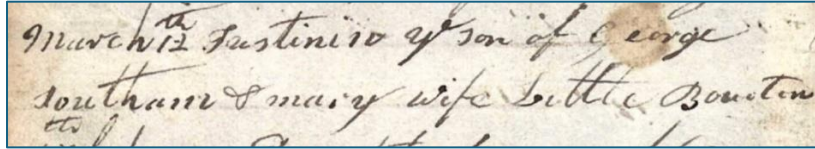 March 12th Justinian yᵉ son of George
Southam & mary wife Little Bourton